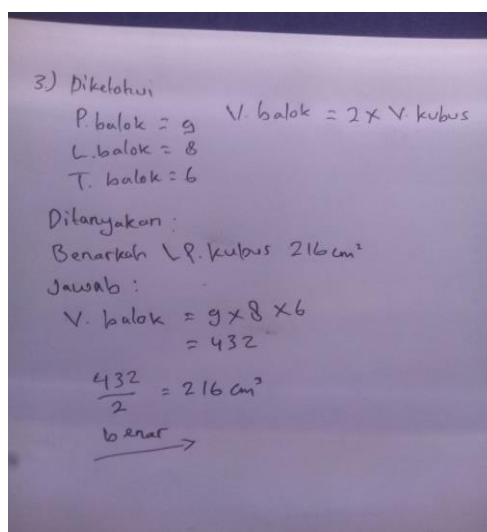 3.) Diketahui
P. balok = 9 V. balok = 2 x V. kubus
L. balok = 8
T. balok = 6
Ditanyakan :
Benarkah LP. kubus 216 cm²
Jawab :
V. balok = 9 x 8 x 6
= 432
432
2
= 216 cm³
benar